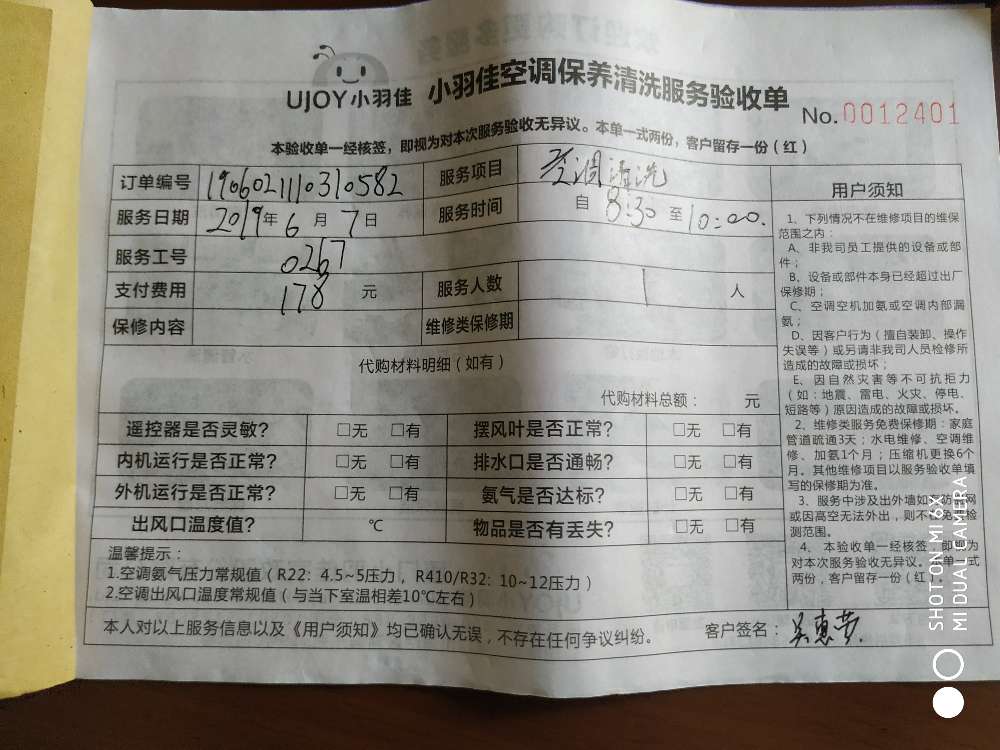 UJOY小羽佳 小羽佳空调保养清洗服务验收单
No.0012401
本验收单一经核签，即视为对本次服务验收无异议。本单一式两份，客户留存一份（红）
订单编号 1906021110310582 服务项目 空调清洗
服务日期 2019年6月7日 服务时间 自8:30至10:00.
服务工号 0267
支付费用 178 元 服务人数 1 人
保修内容 维修类保修期
代购材料明细（如有）
代购材料总额： 元
遥控器是否灵敏? □无 □有 摆风叶是否正常? □无 □有
内机运行是否正常? □无 □有 排水口是否通畅? □无 □有
外机运行是否正常? □无 □有 氨气是否达标? □无 □有
出风口温度值? ℃ 物品是否有丢失? □无 □有
温馨提示：
1.空调氨气压力常规值（R22: 4.5~5压力，R410/R32: 10~12压力）
2.空调出风口温度常规值（与当下室温相差10℃左右）
本人对以上服务信息以及《用户须知》均已确认无误，不存在任何争议纠纷。 客户签名：吴惠
用户须知
1、下列情况不在维修项目的维保
范围之内：
A、非我司员工提供的设备或部
件；
B、设备或部件本身已经超过出厂
保修期；
C、空调空机加氨或空调内部漏
氨；
D、因客户行为（擅自装卸、操作
失误等）或另请非我司人员检修所
造成的故障或损坏；
E、因自然灾害等不可抗拒力
（如：地震、雷电、火灾、停电、
短路等）原因造成的故障或损坏。
2、维修类服务免费保修期：家庭
管道疏通3天；水电维修、空调维
修、加氨1个月；压缩机更换6个
月。其他维修项目以服务验收单填
写的保修期为准。
3、服务中涉及出外墙如 防 网
或因高空无法外出，则不 检
测范围。
4、本验收单一经核签，即视为
对本次服务验收无异议。本单一式
两份，客户留存一份（红）。
SHOT ON MI 6X
MI DUAL CAMERA